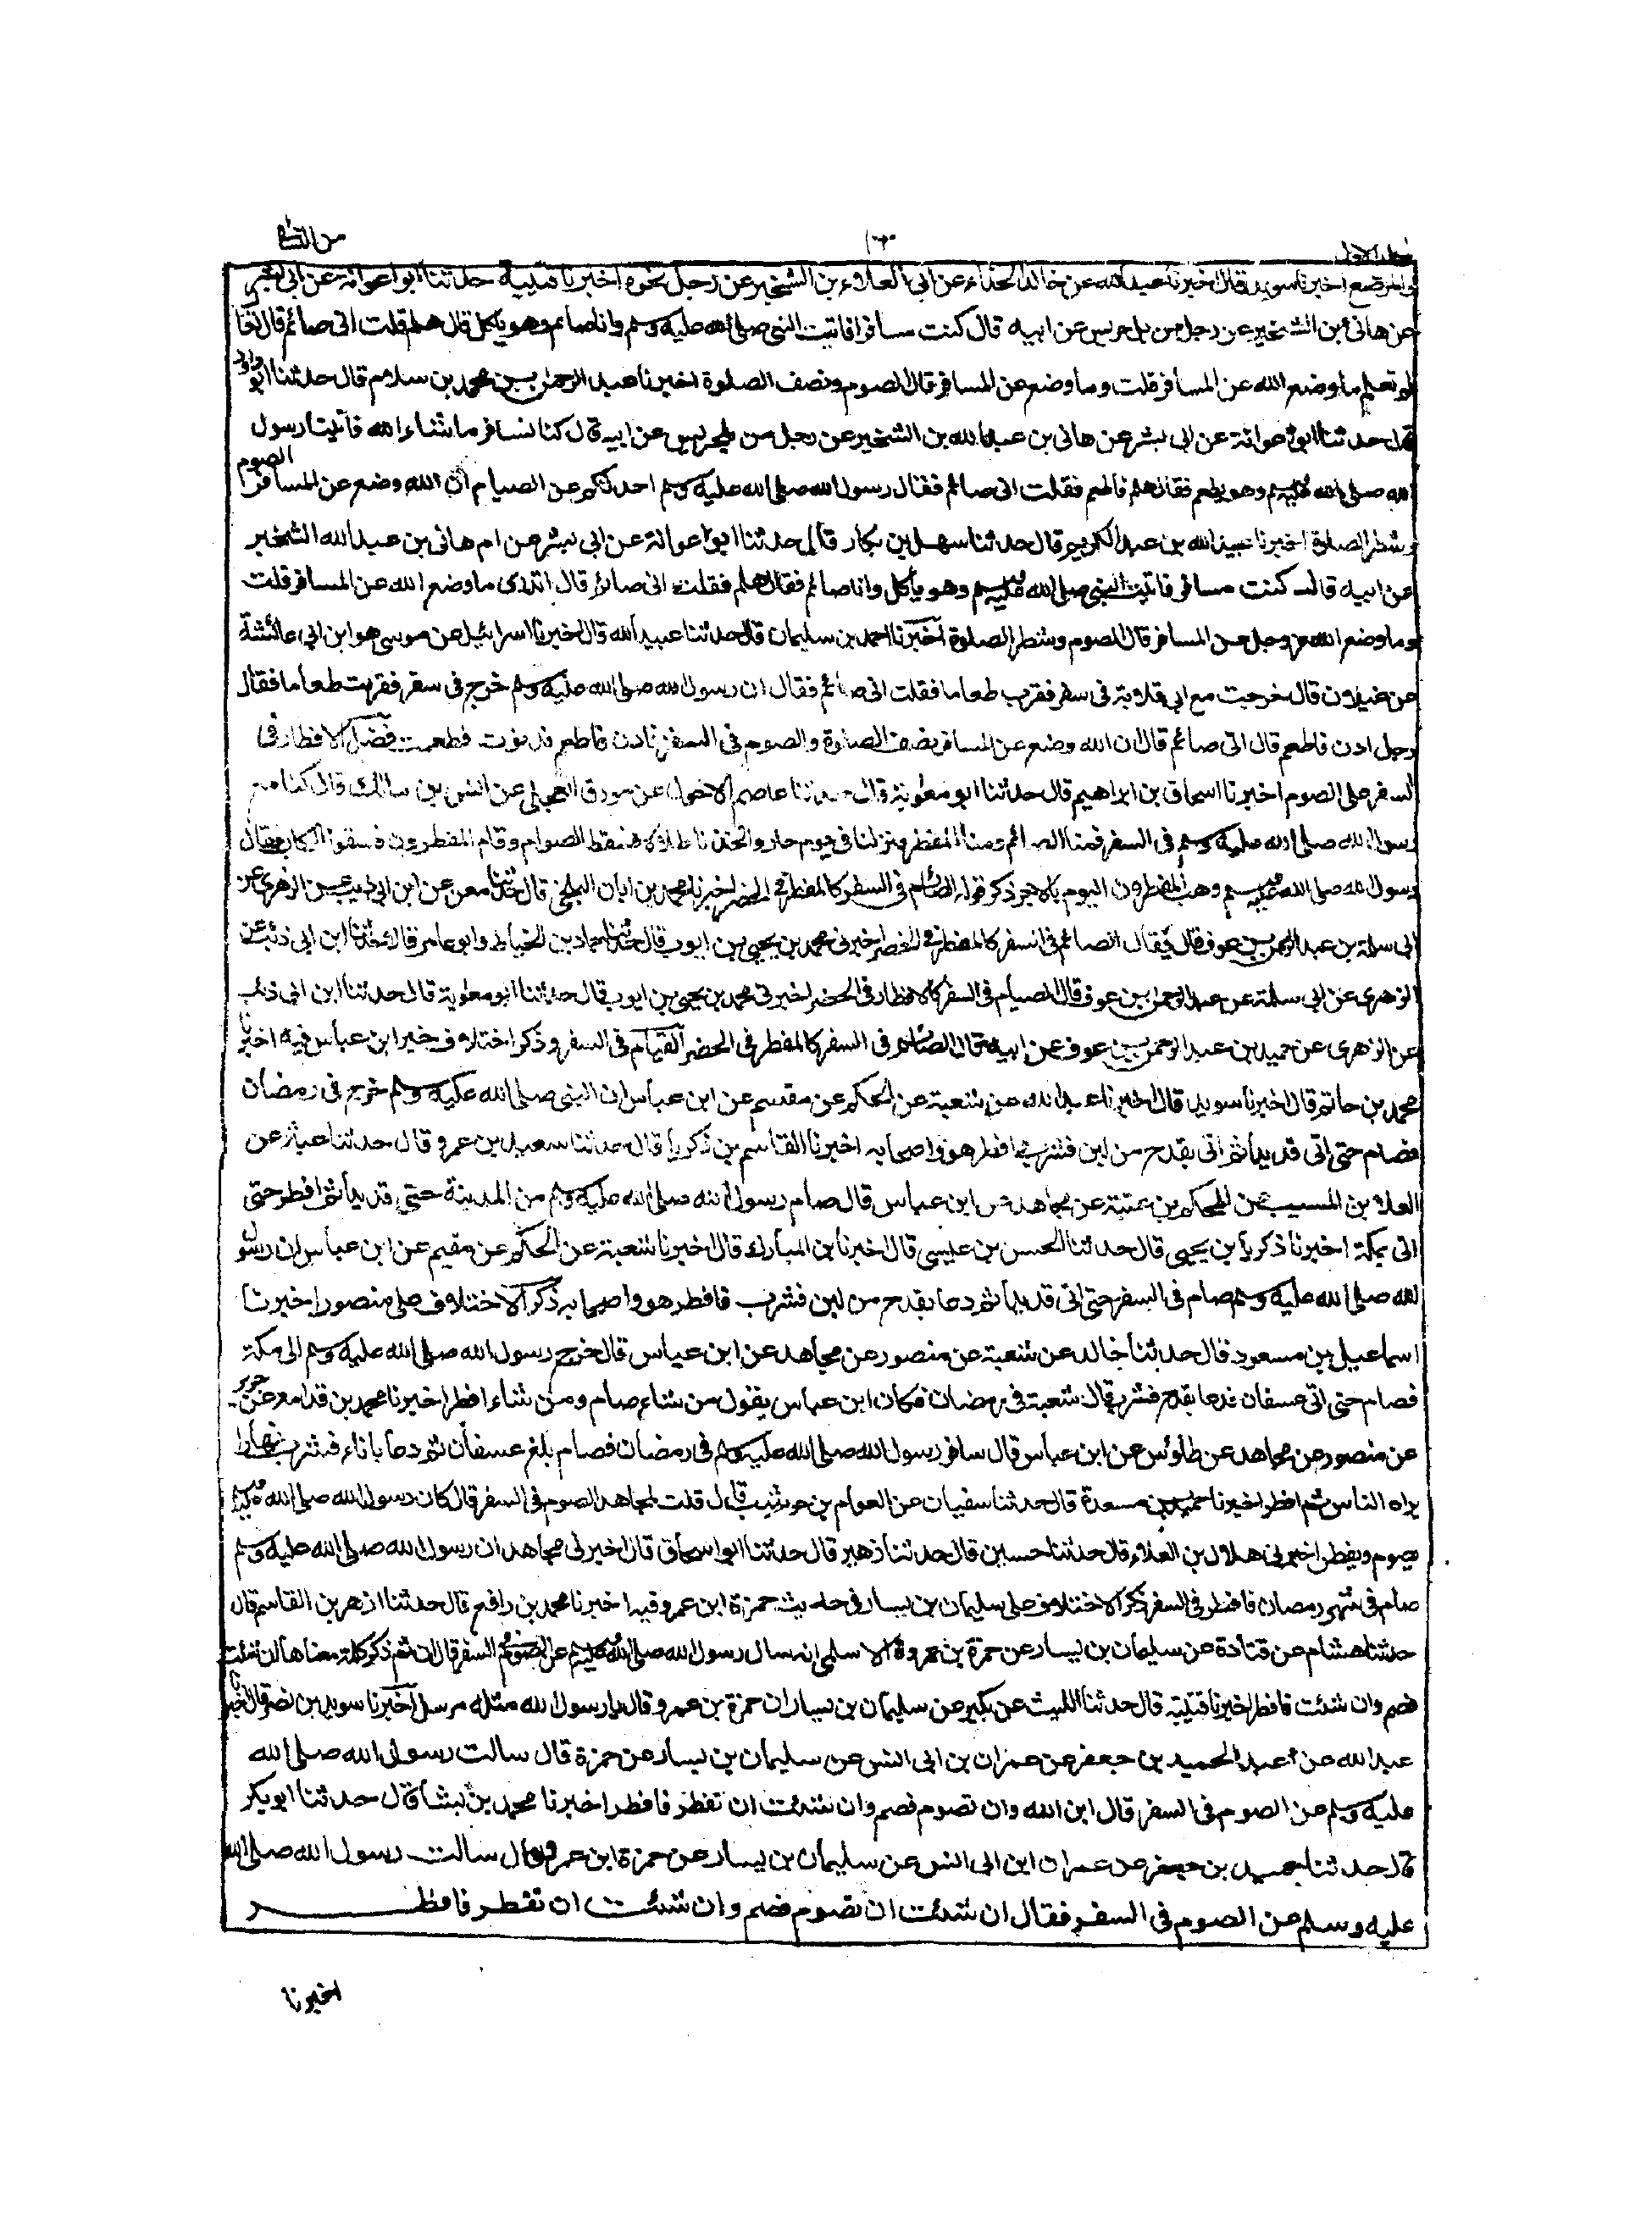 من النسائي
الجلد الاول
والمرضع اخبرنا سويد قال اخبرنا عبد الله عن خالد الحذاء عن ابى العلاء بن الشخير عن رجل نحوه اخبرنا قتيبة حدثنا ابو اعوانة عن ابى بشر
عن هانئ بن الشخير عن رجل من بلحريس عن ابيه قال كنت مسافرا فاتيت النبى صلى الله عليه وسلم وانا صائم وهو ياكل قال هلم قلت انى صائم قال تعا
لم تعلم ما وضع الله عن المسافر قلت وما وضع عن المسافر قال الصوم ونصف الصلوة اخبرنا عبد الرحمن بن محمد بن سلام قال حدثنا ابو داود
قال حدثنا ابو عوانة عن ابى بشر عن هانى بن عبد الله بن الشخير عن رجل من بلحريس عن ابيه قال كنا نسافر ما شاء الله فاتيت رسول
الله صلى الله عليه وسلم وهو يطعم فقال هلم فاطعم فقلت انى صائم فقال رسول الله صلى الله عليه وسلم احدثكم عن الصيام ان الله وضع عن المسافر الصوم
وشطر الصلوة اخبرنا عبيد الله بن عبد الكريم قال حدثنا سهل بن بكار قال حدثنا ابو اعوانة عن ابى بشر عن ام هانى بن عبد الله الشخير
عن ابيه قال كنت مسافر فاتيت النبى صلى الله عليه وسلم وهو يأكل وانا صائم فقال هلم فقلت انى صائم قال اتدرى ما وضع الله عن المسافر قلت
وما وضع الله عز وجل عن المسافر قال الصوم وشطر الصلوة اخبرنا احمد بن سليمان قال حدثنا عبيد الله قال اخبرنا اسرائيل عن موسى هو ابن ابى عائشة
عن غيلان قال خرجت مع ابى قلابة فى سفر فقرب طعاما فقلت انى صائم فقال ان رسول الله صلى الله عليه وسلم خرج فى سفر فقربت طعاما فقال
رجل ادن فاطعم قال انى صائم قال ان الله وضع عن المسافر نصف الصلوة والصوم فى السفر فادن فاطعم فدنوت فطعمت فضل الافطار فى
السفر على الصوم اخبرنا اسحاق بن ابراهيم قال حدثنا ابو معاوية قال حدثنا عاصم الاحول عن مورق العجلى عن انس بن مالك قال كنا مع
رسول الله صلى الله عليه وسلم فى السفر فمنا الصائم ومنا المفطر فنزلنا فى يوم حار واتخذنا ظلالا فسقط الصوام وقام المفطرون فسقوا الركاب فقال
رسول الله صلى الله عليه وسلم وهب المفطرون اليوم بالاجر ذكر قوله الصائم فى السفر كالمفطر فى الحضر اخبرنا محمد بن ابان البلخى قال حدثنا معن عن ابن ابى ذئب عن الزهرى عن
ابى سلمة بن عبد الرحمن بن عوف قال يقال الصائم فى السفر كالمفطر فى الحضر اخبرنى محمد بن يحيى بن ايوب قال حدثنا حماد بن الخياط وابو عامر قال حدثنا ابن ابى ذئب عن
الزهرى عن ابى سلمة عن عبد الرحمن بن عوف قال الصيام فى السفر كالافطار فى الحضر اخبرنى محمد بن يحيى بن ايوب قال حدثنا ابو معاوية قال حدثنا ابن ابى ذئب
عن الزهرى عن حميد بن عبد الرحمن بن عوف عن ابيه قال الصائم فى السفر كالمفطر فى الحضر القيام فى السفر وذكر اختلاف خبر ابن عباس فيه اخبرنا
محمد بن حاتم قال اخبرنا سويد قال اخبرنا عبد الله عن شعبة عن الحكم عن مقسم عن ابن عباس ان النبى صلى الله عليه وسلم خرج فى رمضان
فصام حتى اتى قديدا ثم اتى بقدح من لبن فشرب افطر هو واصحابه اخبرنا القاسم بن زكريا قال حدثنا سعيد بن عمرو قال حدثنا عبثر عن
العلا بن المسيب عن الحكم بن عتبة عن مجاهد عن ابن عباس قال صام رسول الله صلى الله عليه وسلم من المدينة حتى قديدا ثم افطر حتى
اتى بمكة اخبرنا زكريا بن يحيى قال حدثنا الحسن بن عليسى قال خبرنا بن المبارك قال اخبرنا شعبة عن الحكم عن مقيم عن ابن عباس ان رسول
الله صلى الله عليه وسلم صام فى السفر حتى اتى قديدا ثم دعا بقدح من لبن فشرب فافطر هو واصحابه ذكر الاختلاف على منصور اخبرنا
اسماعيل بن مسعود قال حدثنا خالد عن شعبة عن منصور عن مجاهد عن ابن عباس قال خرج رسول الله صلى الله عليه وسلم الى مكة
فصام حتى اتى عسفان فدعا بقدح فشرب قال شعبة فى رمضان فكان ابن عباس يقول من شاء صام ومن شاء افطر اخبرنا محمد بن قدامه عن جرير
عن منصور عن مجاهد عن طاوٗس عن ابن عباس قال سافر رسول الله صلى الله عليه وسلم فى رمضان فصام بلغ عسفان ثم دعا باناء فشرب نهارا
يراه الناس ثم افطر اخبرنا حميد بن مسعدة قال حدثنا سفيان عن العوام بن حوشب قال قلت لمجاهد الصوم فى السفر قال كان رسول الله صلى الله عليه وسلم
يصوم ويفطر اخبرنى هلال بن العلاء قال حدثنا حسين قال حدثنا زهير قال حدثنا ابو اسحاق قال اخبرنى مجاهد ان رسول الله صلى الله عليه وسلم
صام فى شهر رمضان فافطر فى السفر ذكر الاختلاف على سليمان بن يسار فى حديث حمزة ابن عمرو فيه اخبرنا محمد بن رافع قال حدثنا ازهر بن القاسم قال
حدثنا هشام عن قتادة عن سليمان بن يسار عن حمزة بن عمرو الاسلمى انه سال رسول الله صلى الله عليه وسلم عن الصوم فى السفر قال ان ثم ذكر كلمة معناها ان شئت
فصم وان شئت فافطر اخبرنا قتيبة قال حدثنا الليث عن بكير عن سليمان بن يسار ان حمزة بن عمرو قال يا رسول الله مثله مرسل اخبرنا سويد بن نصر قال اخبرنا
عبد الله عن عبد الحميد بن جعفر عن عمران بن ابى انس عن سليمان بن يسار عن حمزة قال سالت رسول الله صلى الله
عليه وسلم عن الصوم فى السفر قال ابن الله وان تصوم فصم وان شئت ان تفطر فافطر اخبرنا محمد بن بشا قال حدثنا ابو بكر
قال حدثنا عبد الحميد بن جعفر عن عمران ابن ابى انس عن سليمان بن يسار عن حمزة ابن عمرو قال سالت رسول الله صلى الله
عليه وسلم عن الصوم فى السفر فقال ان شئت ان تصوم فصم وان شئت ان تفطر فافطر
اخبرنا